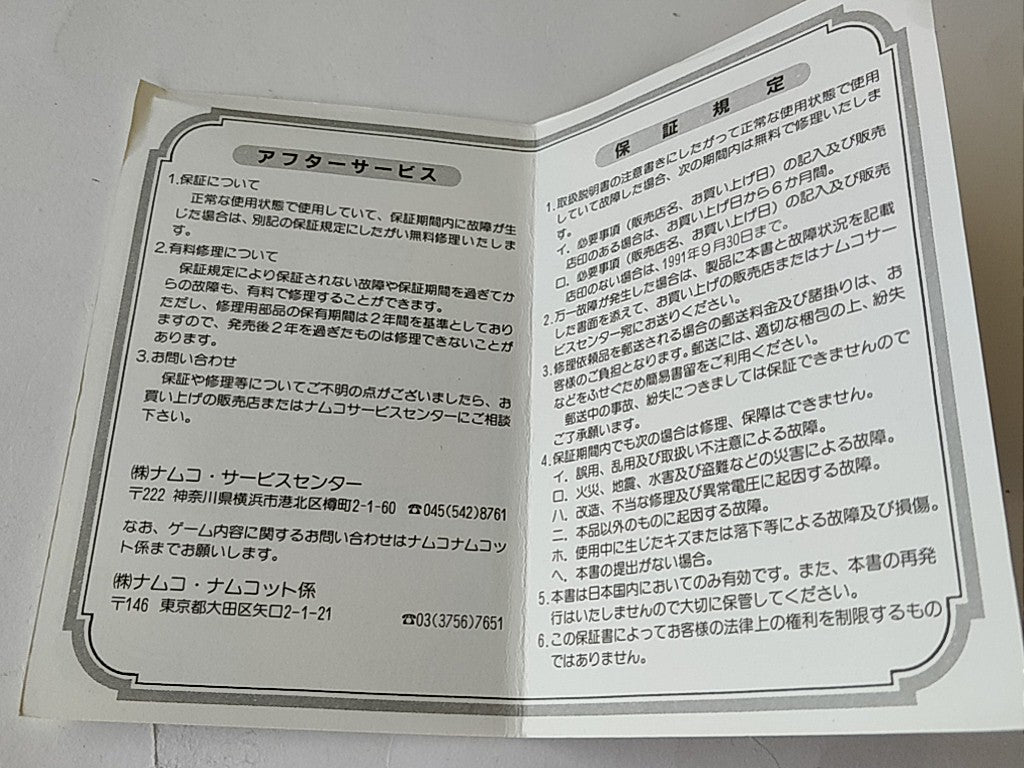 アフターサービス
1.保証について
正常な使用状態で使用していて、保証期間内に故障が生
じた場合は、別記の保証規定にしたがい無料修理いたしま
す。
2.有料修理について
保証規定により保証されない故障や保証期間を過ぎてか
らの故障も、有料で修理することができます。
ただし、修理用部品の保有期間は2年間を基準としており
ますので、発売後2年を過ぎたものは修理できないことが
あります。
3.お問い合わせ
保証や修理等についてご不明の点がございましたら、お
買い上げの販売店またはナムコサービスセンターにご相談
下さい。
㈱ナムコ・サービスセンター
〒222 神奈川県横浜市港北区樽町2-1-60 ☎045(542)8761
なお、ゲーム内容に関するお問い合わせはナムコナムコッ
ト係までお願いします。
㈱ナムコ・ナムコット係
〒146 東京都大田区矢口2-1-21 ☎03(3756)7651
保証規定
1.取扱説明書の注意書きにしたがって正常な使用状態で使用
していて故障した場合、次の期間内は無料で修理いたしま
す。
イ．必要事項（販売店名、お買い上げ日）の記入及び販売
店印のある場合は、お買い上げ日から6か月間。
ロ．必要事項（販売店名、お買い上げ日）の記入及び販売
店印のない場合は、1991年9月30日まで。
2.万一故障が発生した場合は、製品に本書と故障状況を記載
した書面を添えて、お買い上げの販売店またはナムコサー
ビスセンター宛にお送りください。
3.修理依頼品を郵送される場合の郵送料金及び諸掛りは、お
客様のご負担となります。郵送には、適切な梱包の上、紛失
などをふせぐため簡易書留をご利用ください。
郵送中の事故、紛失につきましては保証できませんので
ご了承願います。
4.保証期間内でも次の場合は修理、保障はできません。
イ．誤用、乱用及び取扱い不注意による故障。
ロ．火災、地震、水害及び盗難などの災害による故障。
ハ．改造、不当な修理及び異常電圧に起因する故障。
ニ．本品以外のものに起因する故障。
ホ．使用中に生じたキズまたは落下等による故障及び損傷。
ヘ．本書の提出がない場合。
5.本書は日本国内においてのみ有効です。また、本書の再発
行はいたしませんので大切に保管してください。
6.この保証書によってお客様の法律上の権利を制限するもの
ではありません。